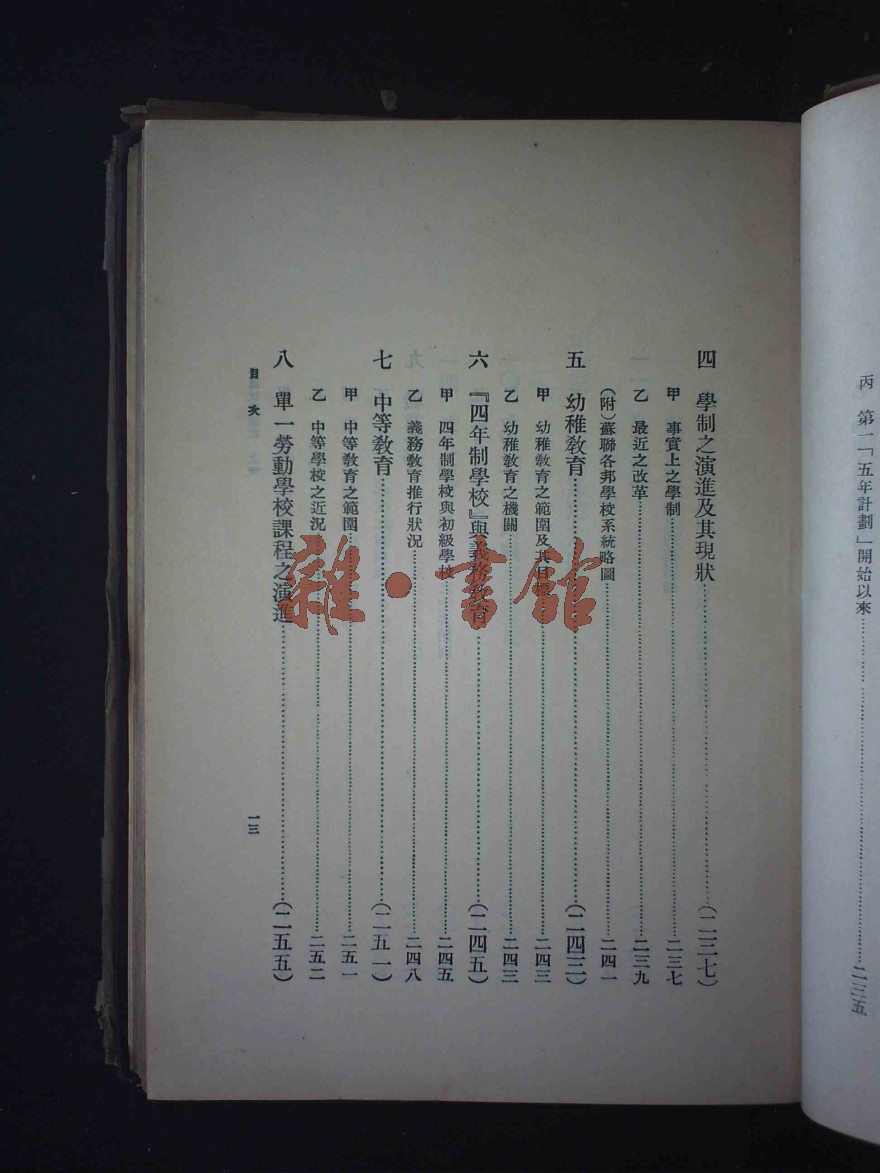 丙　第一「五年計劃」開始以來……二三五
四　學制之演進及其現狀……(二三七)
甲　事實上之學制……二三七
乙　最近之改革……二三九
(附)蘇聯各邦學校系統略圖……二四一
五　幼稚教育……(二四三)
甲　幼稚教育之範圍及其目標……二四三
乙　幼稚教育之機關……二四三
六　『四年制學校』與義務教育……(二四五)
甲　四年制學校與初級學校……二四五
乙　義務教育推行狀況……二四八
七　中等教育……(二五一)
甲　中等教育之範圍……二五一
乙　中等學校之近況……二五二
八　單一勞動學校課程之演進……(二五五)
目次
一三
雜·書館